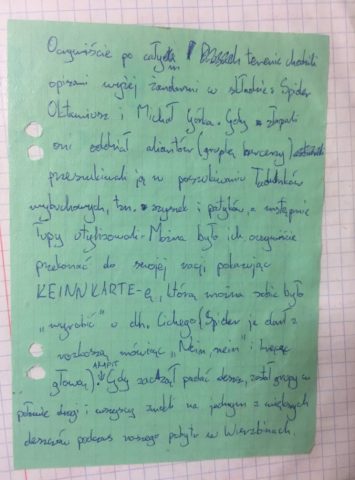 Oczywiście po całym terenie chodzili
opisani wyżej żandarmi w składzie: Spider
Oktawiusz i Michał Górka. Gdy złapali
oni oddział aliantów (grupkę harcerzy)
przeszukiwali ją w poszukiwaniu ładunków
wybuchowych, tzn. szyszek i patyków, a następnie
łupy utylizowali. Można było ich oczywiście
przekonać do swojej racji pokazując
KEINNKARTE-ę, którą można sobie było
„wyrobić" u dh. Cichego (Spider je darł z
rozkoszą mówiąc „Nein, nein" i kręcąc
głową). Gdy zaczął padać deszcz, został grupy w
połowie drogi i wszyscy zmokli na jednym z większych
deszczów podczas naszego pobytu w Wierzbinach.